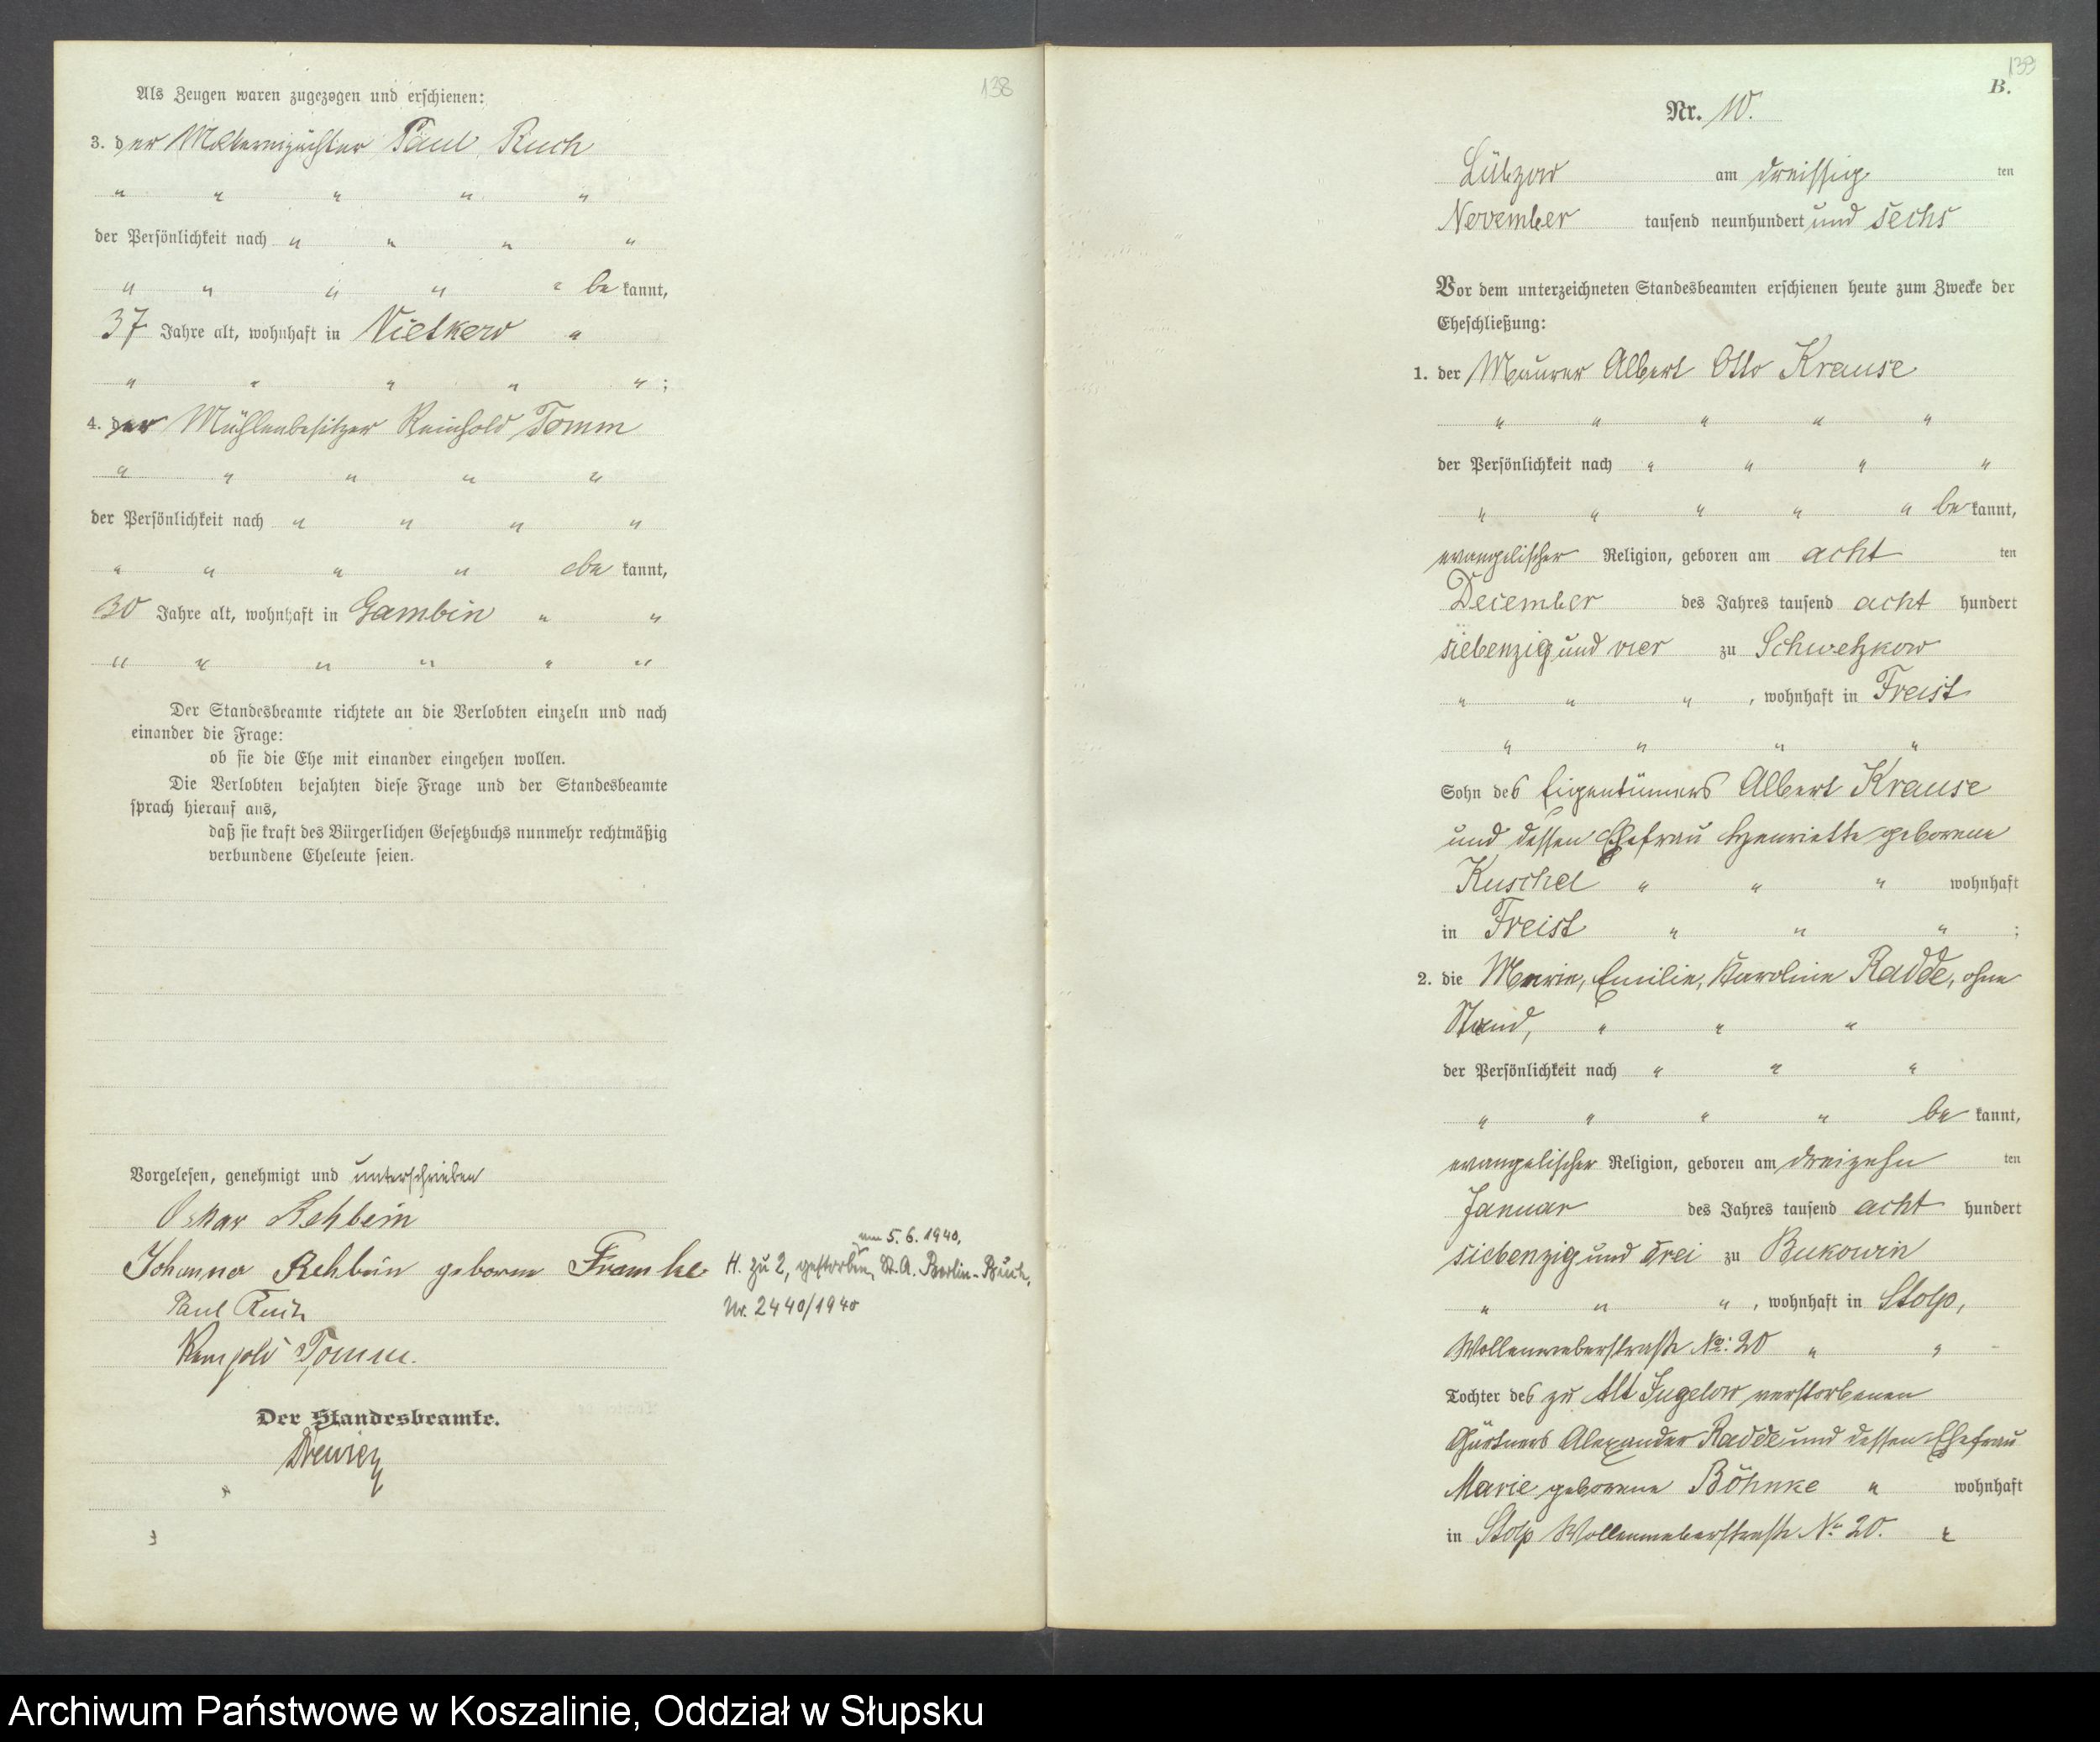 138
Als Zeugen waren zugezogen und erschienen:
3. der Molkereipächter Paul Ruch
" " " " "
der Persönlichkeit nach " " " "
" " " " " bekannt,
37 Jahre alt, wohnhaft in Vietkow "
" " " " " ;
4. der Mühlenbesitzer Reinhold Tomm
" " " " "
der Persönlichkeit nach " " " "
" " " " bekannt,
30 Jahre alt, wohnhaft in Gambin " "
" " " " " "
Der Standesbeamte richtete an die Verlobten einzeln und nach
einander die Frage:
ob sie die Ehe mit einander eingehen wollen.
Die Verlobten bejahten diese Frage und der Standesbeamte
sprach hierauf aus,
daß sie kraft des Bürgerlichen Gesetzbuchs nunmehr rechtmäßig
verbundene Eheleute seien.
Vorgelesen, genehmigt und unterschrieben
Oskar Rehbein
Johanna Rehbein geborene Framke
Paul Ruch
Reinhold Tomm.
am 5.6.1940,
H. zu 2, gestorben, St. A. Berlin-Buch,
Nr. 2440/1940
Der Standesbeamte.
139
B.
Nr. 10.
Lübzow am dreissigten
November tausend neunhundert und sechs
Vor dem unterzeichneten Standesbeamten erschienen heute zum Zwecke der
Eheschließung:
1. der Maurer Albert Otto Krause
" " " " "
der Persönlichkeit nach " " " "
" " " " " bekannt,
evangelischer Religion, geboren am achtten
December des Jahres tausend acht hundert
siebenzig und vier zu Schwetzkow
" " " , wohnhaft in Freist
" " " "
Sohn des Eigentümers Albert Krause
und dessen Ehefrau Henriette geborene
Kuschel " " " wohnhaft
in Freist " " " ;
2. die Marie, Emilie, Karoline Radde, ohne
Stand, " " "
der Persönlichkeit nach " " "
" " " " bekannt,
evangelischer Religion, geboren am dreizehnten
Januar des Jahres tausend acht hundert
siebenzig und drei zu Bukowin
" " " , wohnhaft in Stolp,
Wollenweberstraße No: 20 " "
Tochter des zu Alt Jugelow verstorbenen
Gärtners Alexander Radde und dessen Ehefrau
Marie geborene Böhnke " wohnhaft
in Stolp Wollenweberstraße No 20. "
Archiwum Państwowe w Koszalinie, Oddział w Słupsku